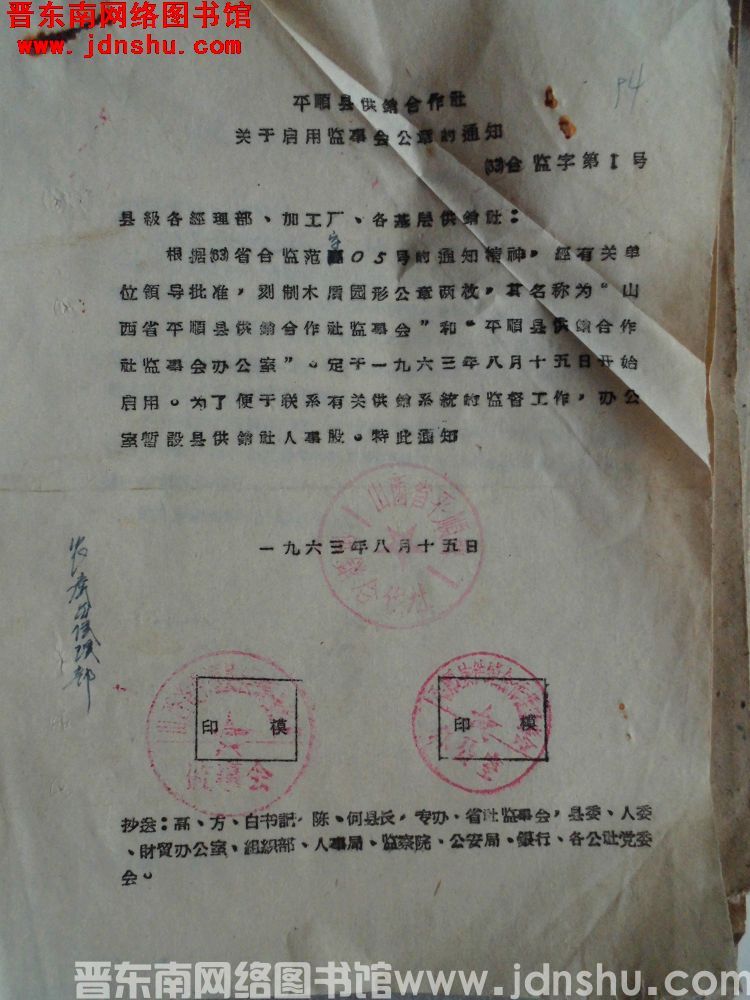 晋东南网络图书馆
www.jdnshu.com
94
平順县供銷合作社
关于启用监事会公章的通知
(63)合监字第1号
县級各經理部、加工厂、各基层供銷社：
根据(63)省合监范字05号的通知精神，經有关单
位領导批准，刻制木质园形公章两枚，其名称为“山
西省平順县供銷合作社监事会”和“平順县供銷合作
社监事会办公室”。定于一九六三年八月十五日开始
启用。为了便于联系有关供銷系統的监督工作，办公
室暫設县供銷社人事股。特此通知
山西省平順县供銷合作社
一九六三年八月十五日
印模
监事会
印模
抄送：高、方、白书記，陈、何县长，专办、省社监事会，县委、人委
、財貿办公室、組織部、人事局、监察院、公安局、銀行、各公社党委
会。
晋东南网络图书馆www.jdnshu.com